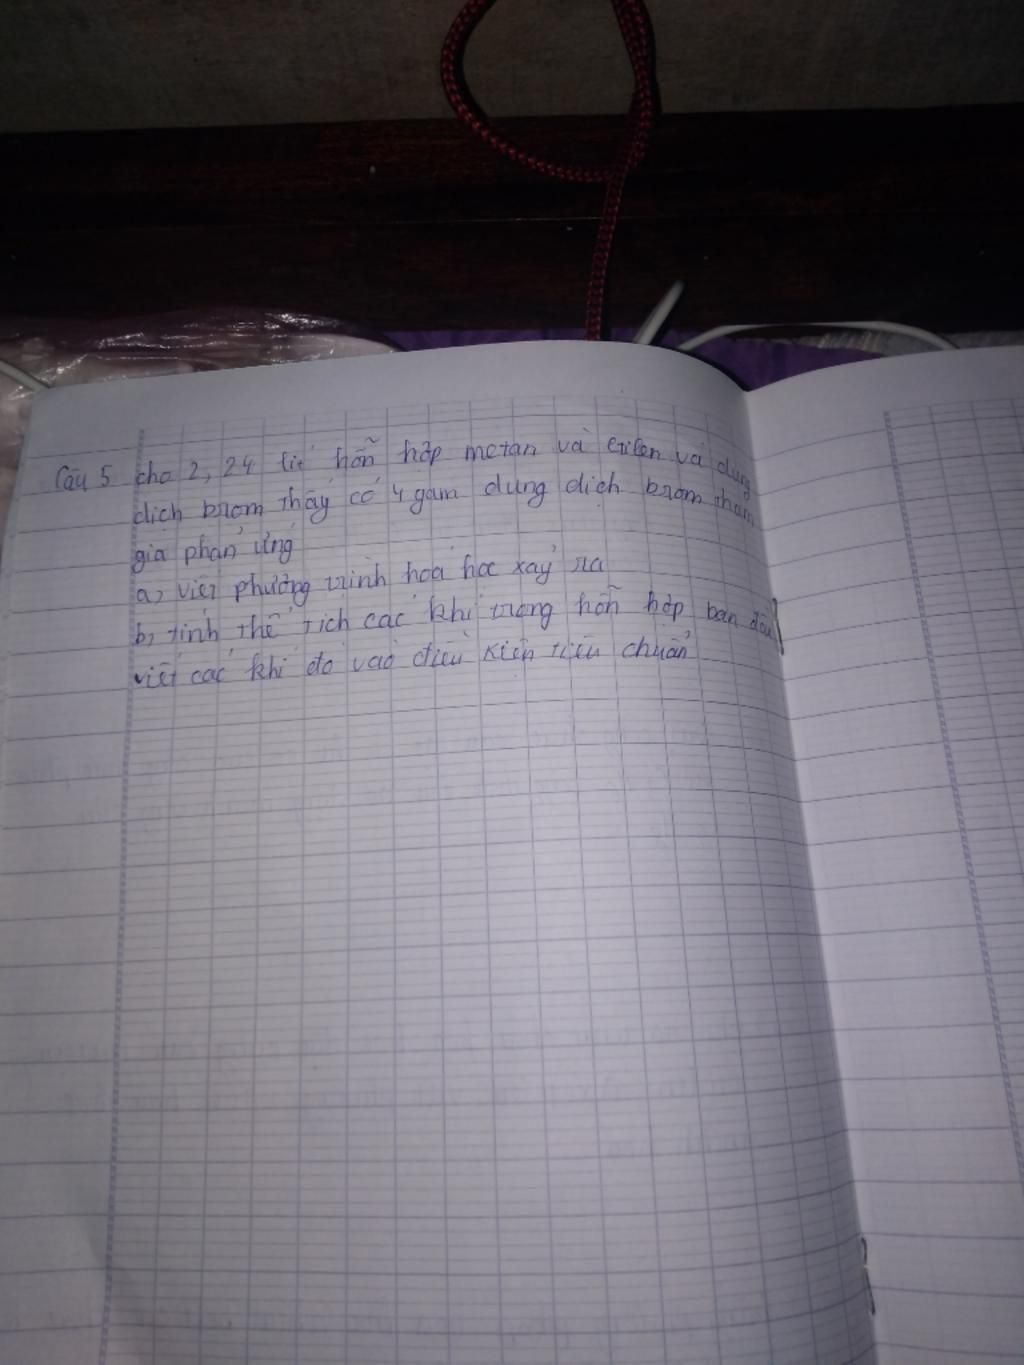 Câu 5 cho 2,24 lít hỗn hợp metan và etilen và dung
dịch brom thấy có 4 gam dung dịch brom tham
gia phản ứng
a, viết phương trình hoá học xảy ra
b, tính thể tích các khí trong hỗn hợp ban đầu
viết các khí đó vào điều kiện tiêu chuẩn